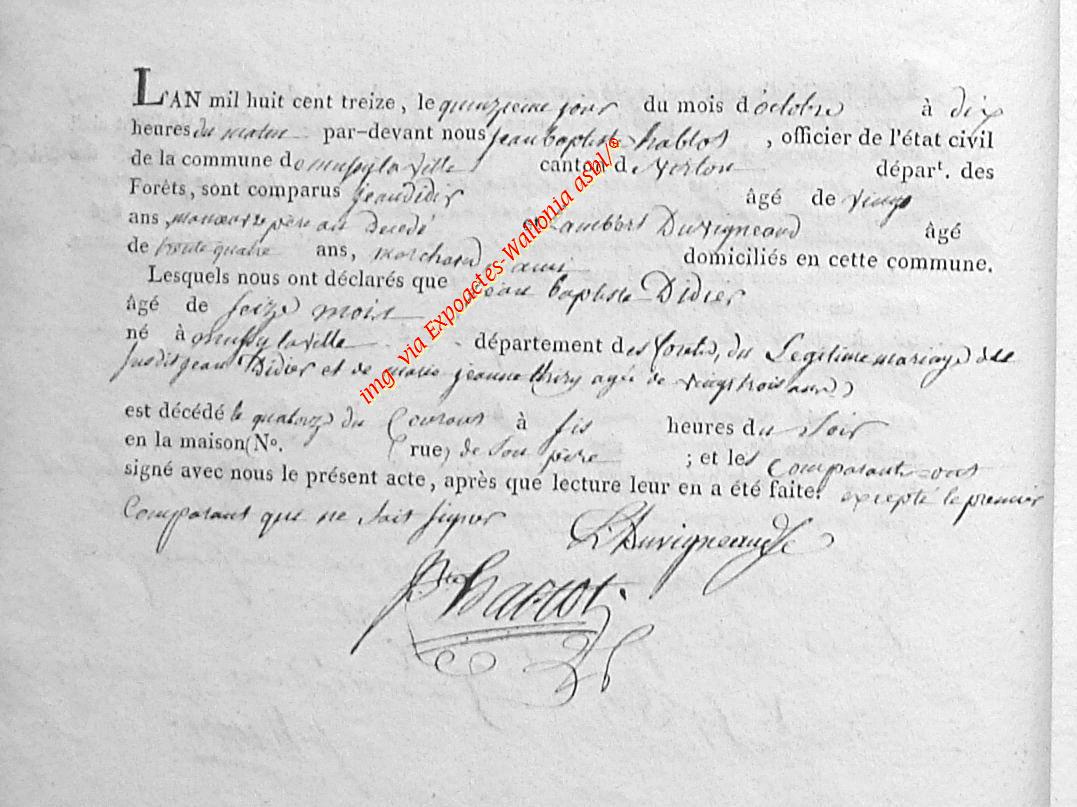 L'AN mil huit cent treize, le quinzieme jour du mois d'octobre à dix
heures du matin par-devant nous jean baptiste hablot, officier de l'état civil
de la commune de mussy la ville canton de virton dépar^t. des
Forêts, sont comparus jean didir âgé de vingt
ans, père au decedé et Lambert Duvigneaud âgé
de trente quatre ans, marchand ami domiciliés en cette commune.
Lesquels nous ont déclarés que jean baptiste Didier
âgé de seize mois
né à mussy la ville département des forets, du Legitime mariage de
susdit jean Didier et de marie jeanne thiry agée de vingt trois ans
est décédé le quatorze du Courant à six heures du soir
en la maison (N°. rue) de son père ; et les Comparants ont
signé avec nous le présent acte, après que lecture leur en a été faite. excepté le premier
Comparant que ne sait signer
L Duvigneaud
hablot
img via Expoactes-Wallonia asbl/©